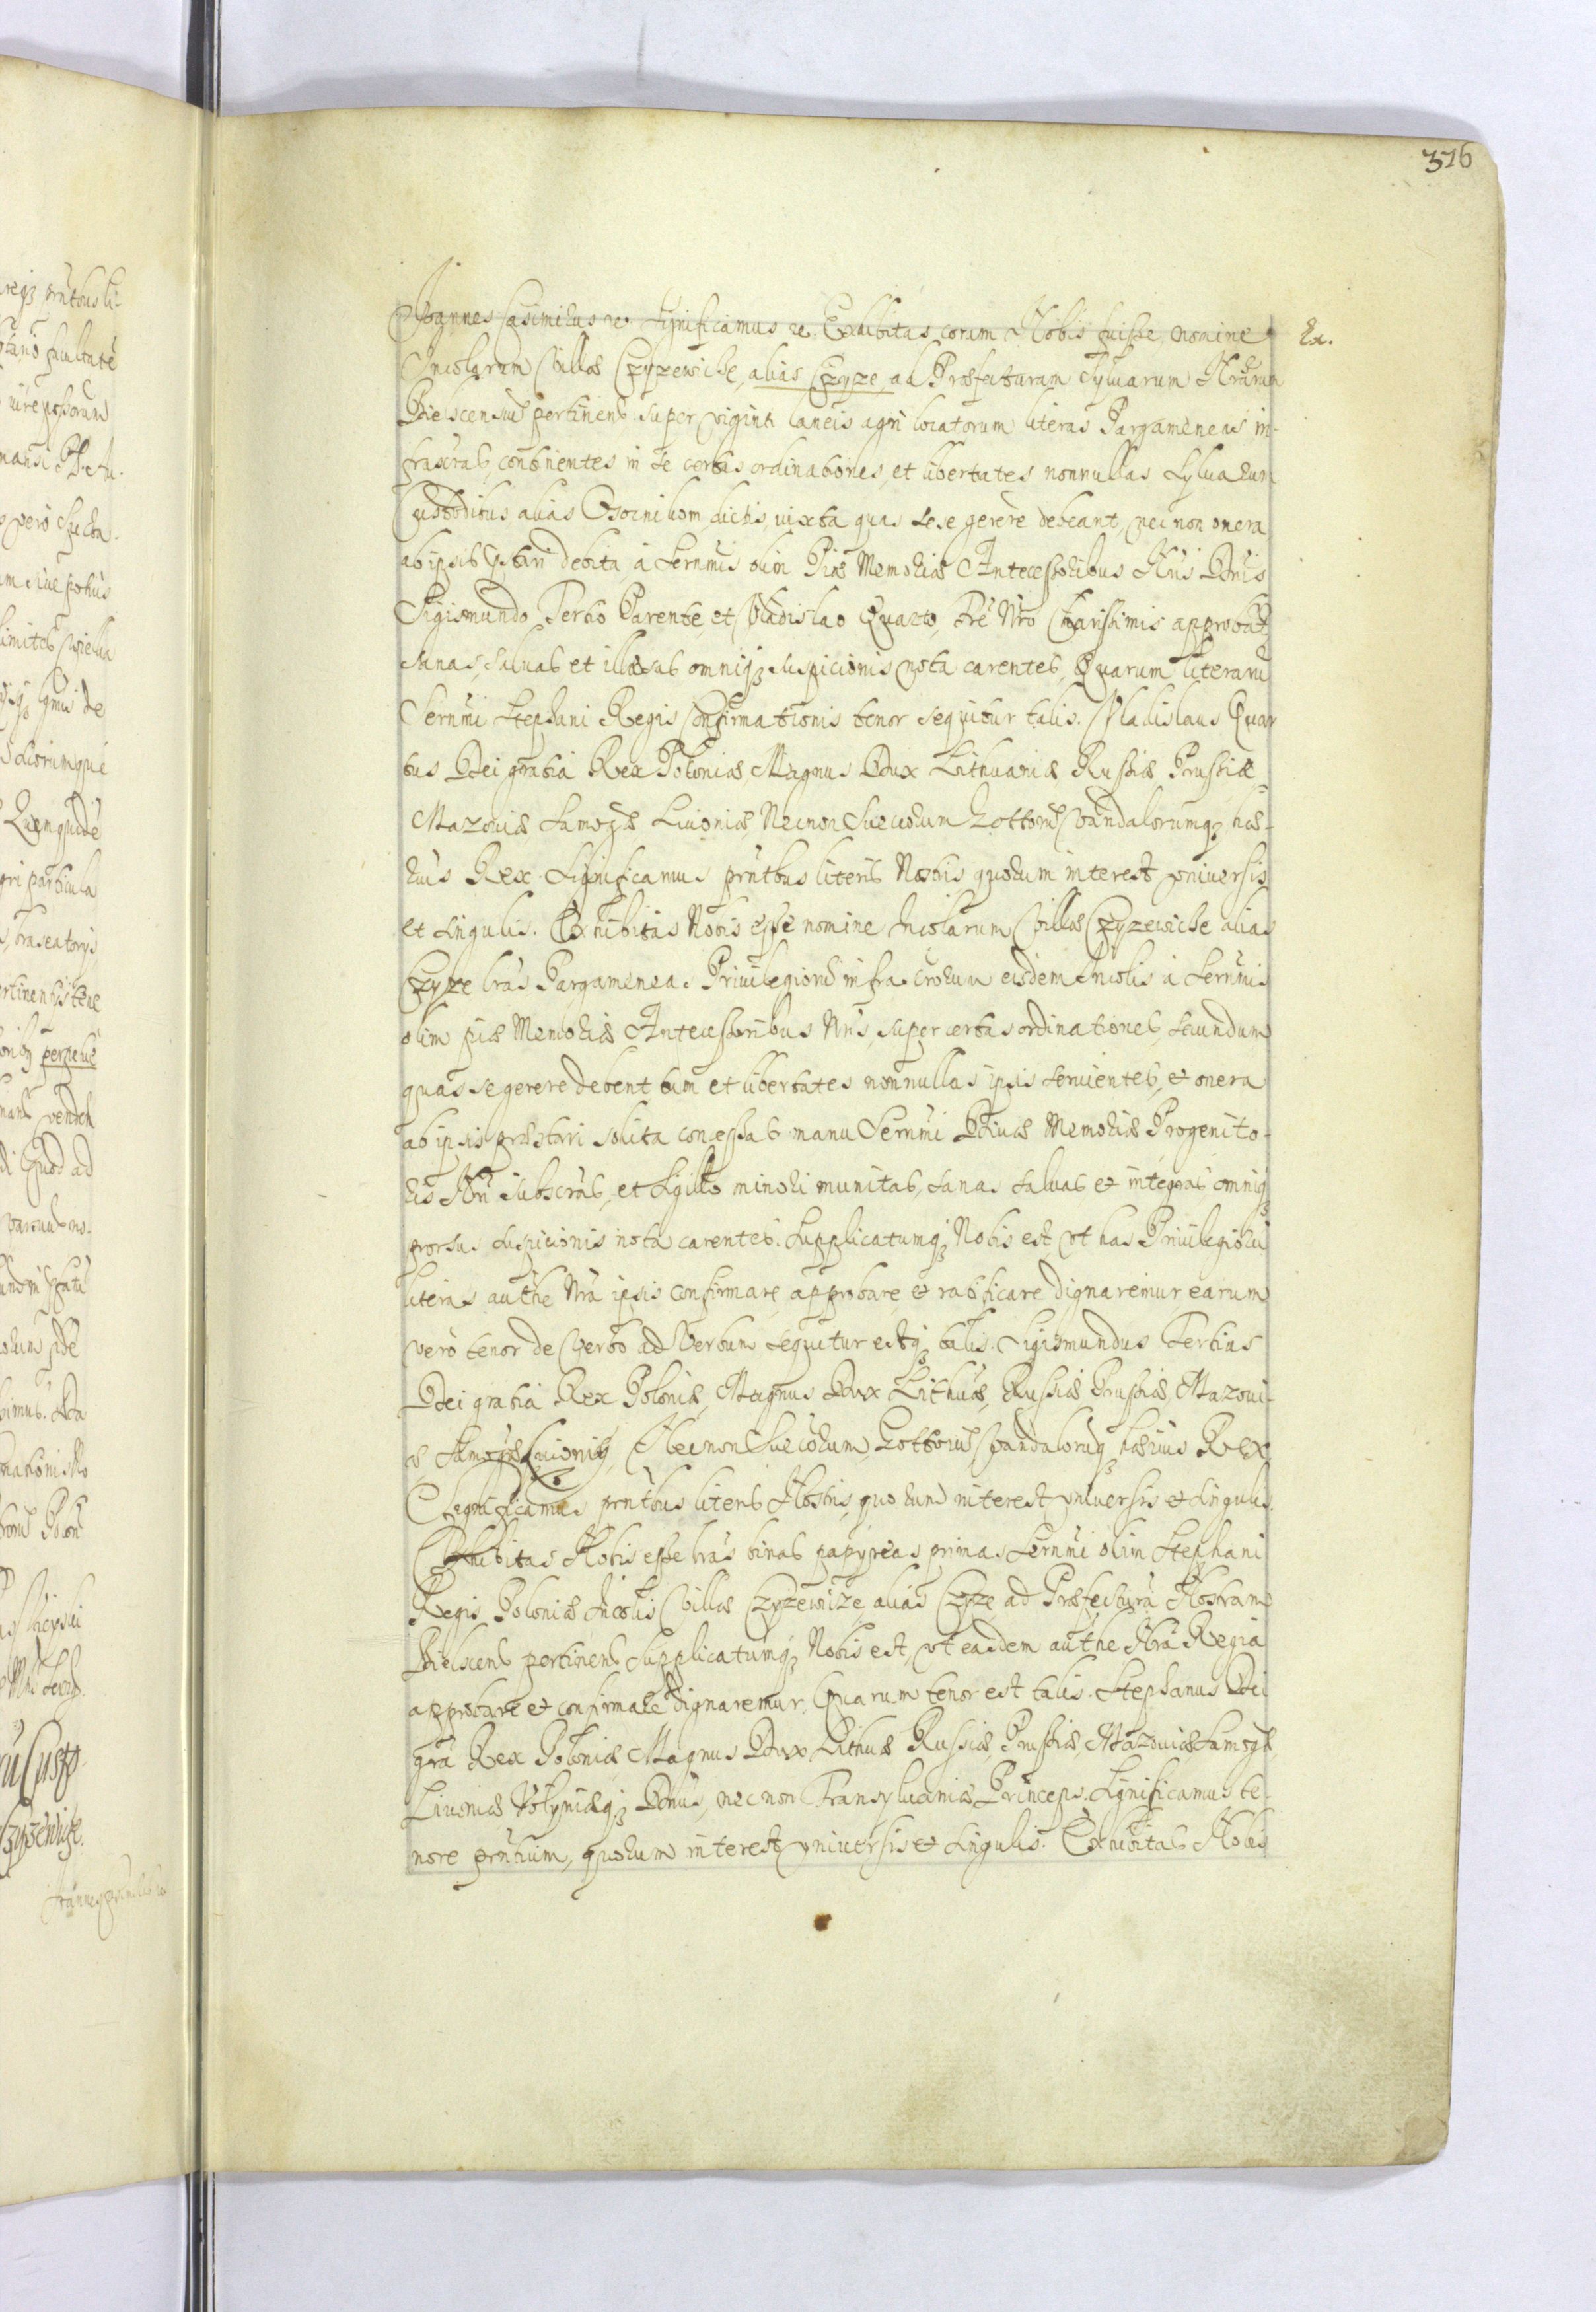 376
Joannes Casimirus etc. Significamus etc. Exhibitas coram Nobis fuisse, nomine
Ex.
Incolarum Villæ Czyzewicze, alias Czyze, ad Præfecturam Sylvarum Nrarum
Bielscensiũ pertinens super viginti laneis agri locatorum literas Pargameneas in-
frascrtas continentes in se certas ordinationes, et libertates nonnullas Sylvarum
Custodibus alias Osocnikom dictis, iuxta quas sese gerere debeant, nec non onera
ab ipsis pstari debita, à Sermis olim Piæ Memoriæ Antecessoribus Nris Dnis
Sigismundo Tertio Parente et Vladislao Quarto, Fre Nro Charissimis approbat.
sanas, salvas et illæsas omniq₃ suspicionis nota carentes, Quarum literarũ
Sermi Stephani Regis Confirmationis tenor sequitur talis. Vladislaus Quar
tus Dei gratia Rex Poloniæ, Magnus Dux Lithuaniæ Russiæ Prussiæ
Mazoviæ Samogæ Livoniæ, Necnon Suecorum Gottorũ Vandalorumq₃ hæ-
rius Rex. Significamus pntbus literis Nostris quorum interest universis
et singulis. Exhibitas Nobis esse nomine Incolarum Villæ Czyzewicze alias
Czyze lras Pargamenea. Privilegiorũ infrascrorum eisdem Incolis à Sermis
olim piæ Memoriæ Antecessoribus Nris super certas ordinationes, secundum
quas se gerere debent tum et libertates nonnullas ipsis servientes, et onera
ab ipsis præstari solita concessas manu Sermi Divæ Memoriæ Progenito-
ris Nri subscrtas, et Sigillo minori munitas, sanas salvas et integras omniq₃
prorsus suspicionis nota carentes. Supplicatumq₃ Nobis est, vt has Privilegiorũ
literas authe Nra ipsis confirmare approbare et ratificare dignaremur earum
verò tenor de Verbo ad Verbum sequitur estq₃ talis. Sigismundus Tertius
Dei gratia Rex Poloniæ, Magnus Dux Lithuæ, Russiæ Prussiæ, Mazovi-
æ Samogæ Livoniæq₃, Necnon Suecorum, Gottorũ Vandalorũq₃ hærius Rex.
Significamus pntbus literis Nostris, quorum interest universis et singulis.
Exhibitas Nobis esse lras binas papyreas primas Sermi olim Stephani
Regis Poloniæ Incolis Villæ Czyzewize, alias Czyze ad Præfecturã Nostram
Bielscens pertinens Supplicatumq₃ Nobis est, vt easdem authe Nra Regia
approbare et confirmare dignaremur, Quarum tenor est talis. Stephanus Dei
gra Rex Poloniæ Magnus Dux Lithuæ Russiæ, Prussiæ, Mazoviæ Samogæ,
Livoniæ Volyniæq₃ Dnus, nec non Transylvaniæ Princeps. Significamus te-
nore pntium, quorum interest, universis et singulis. Exhibitas Nobis